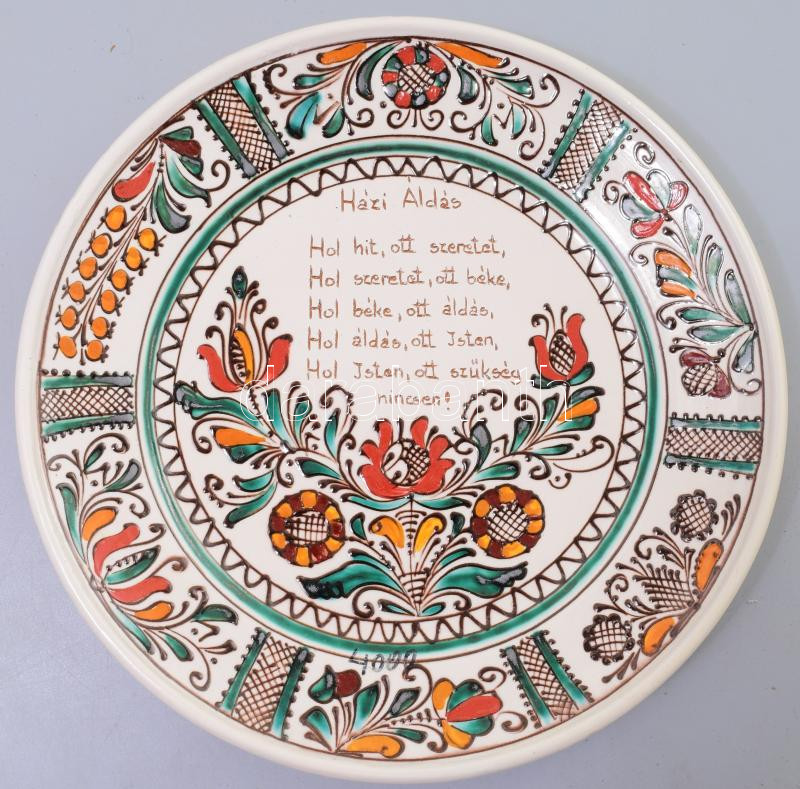 Házi Áldás
Hol hit, ott szeretet,
Hol szeretet, ott béke,
Hol béke, ott áldás,
Hol áldás, ott Isten,
Hol Isten, ott szükség
nincsen!
darabanth
4000